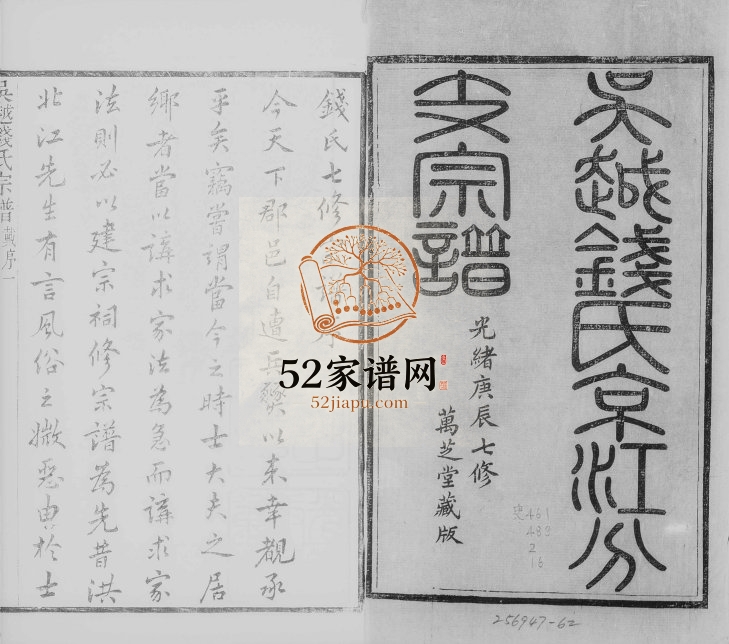 吳越錢氏京江分
支宗譜
光緒庚辰七修
萬芝堂藏版
461
483
2
16
256947-62
錢氏七修
今天下郡邑自遭兵燹以來幸覩承
平矣竊嘗謂當今之時士大夫之居
鄉者當以講求家法為急而講求家
法則必以建宗祠修宗譜為先昔洪
北江先生有言風俗之媺惡由於士
吳越錢氏宗譜 戴序 一
52家谱网
52jiapu.com